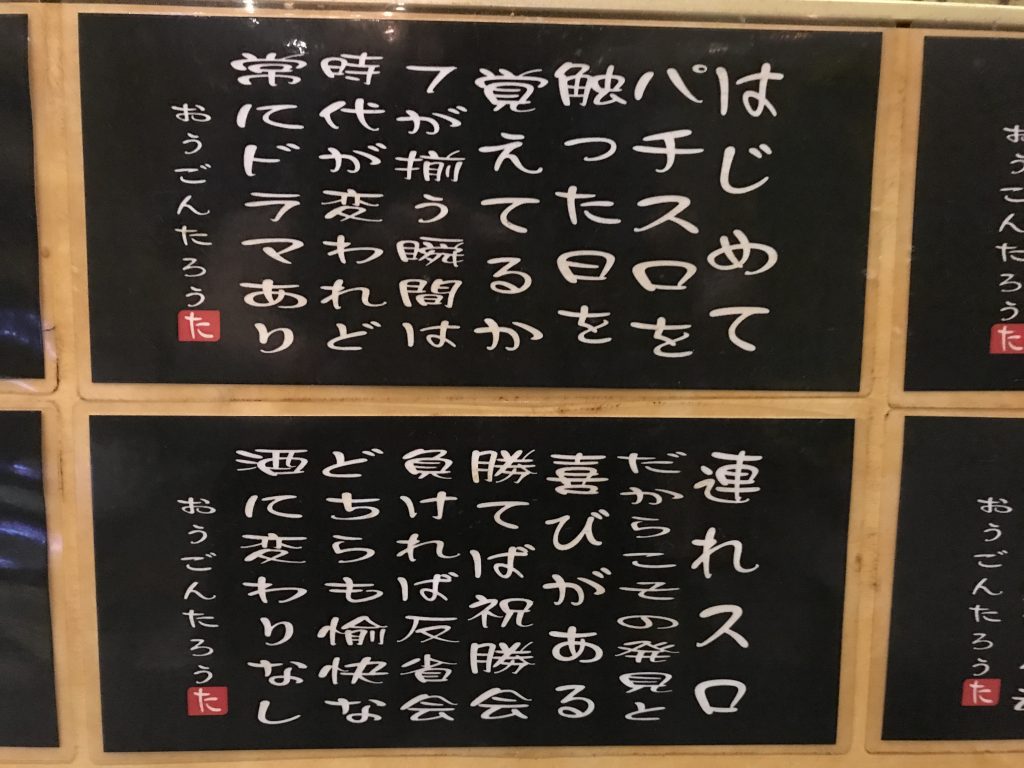 はじめて
パチスロを
触った日を
覚えてるか
7が揃う瞬間は
時代が変われど
常にドラマあり
おうごんたろう
た
連れスロ
だからこその発見と
喜びがある
勝てば祝勝会
負ければ反省会
どちらも愉快な
酒に変わりなし
おうごんたろう
た
おうごんたろう
た
おうごんたろう
た